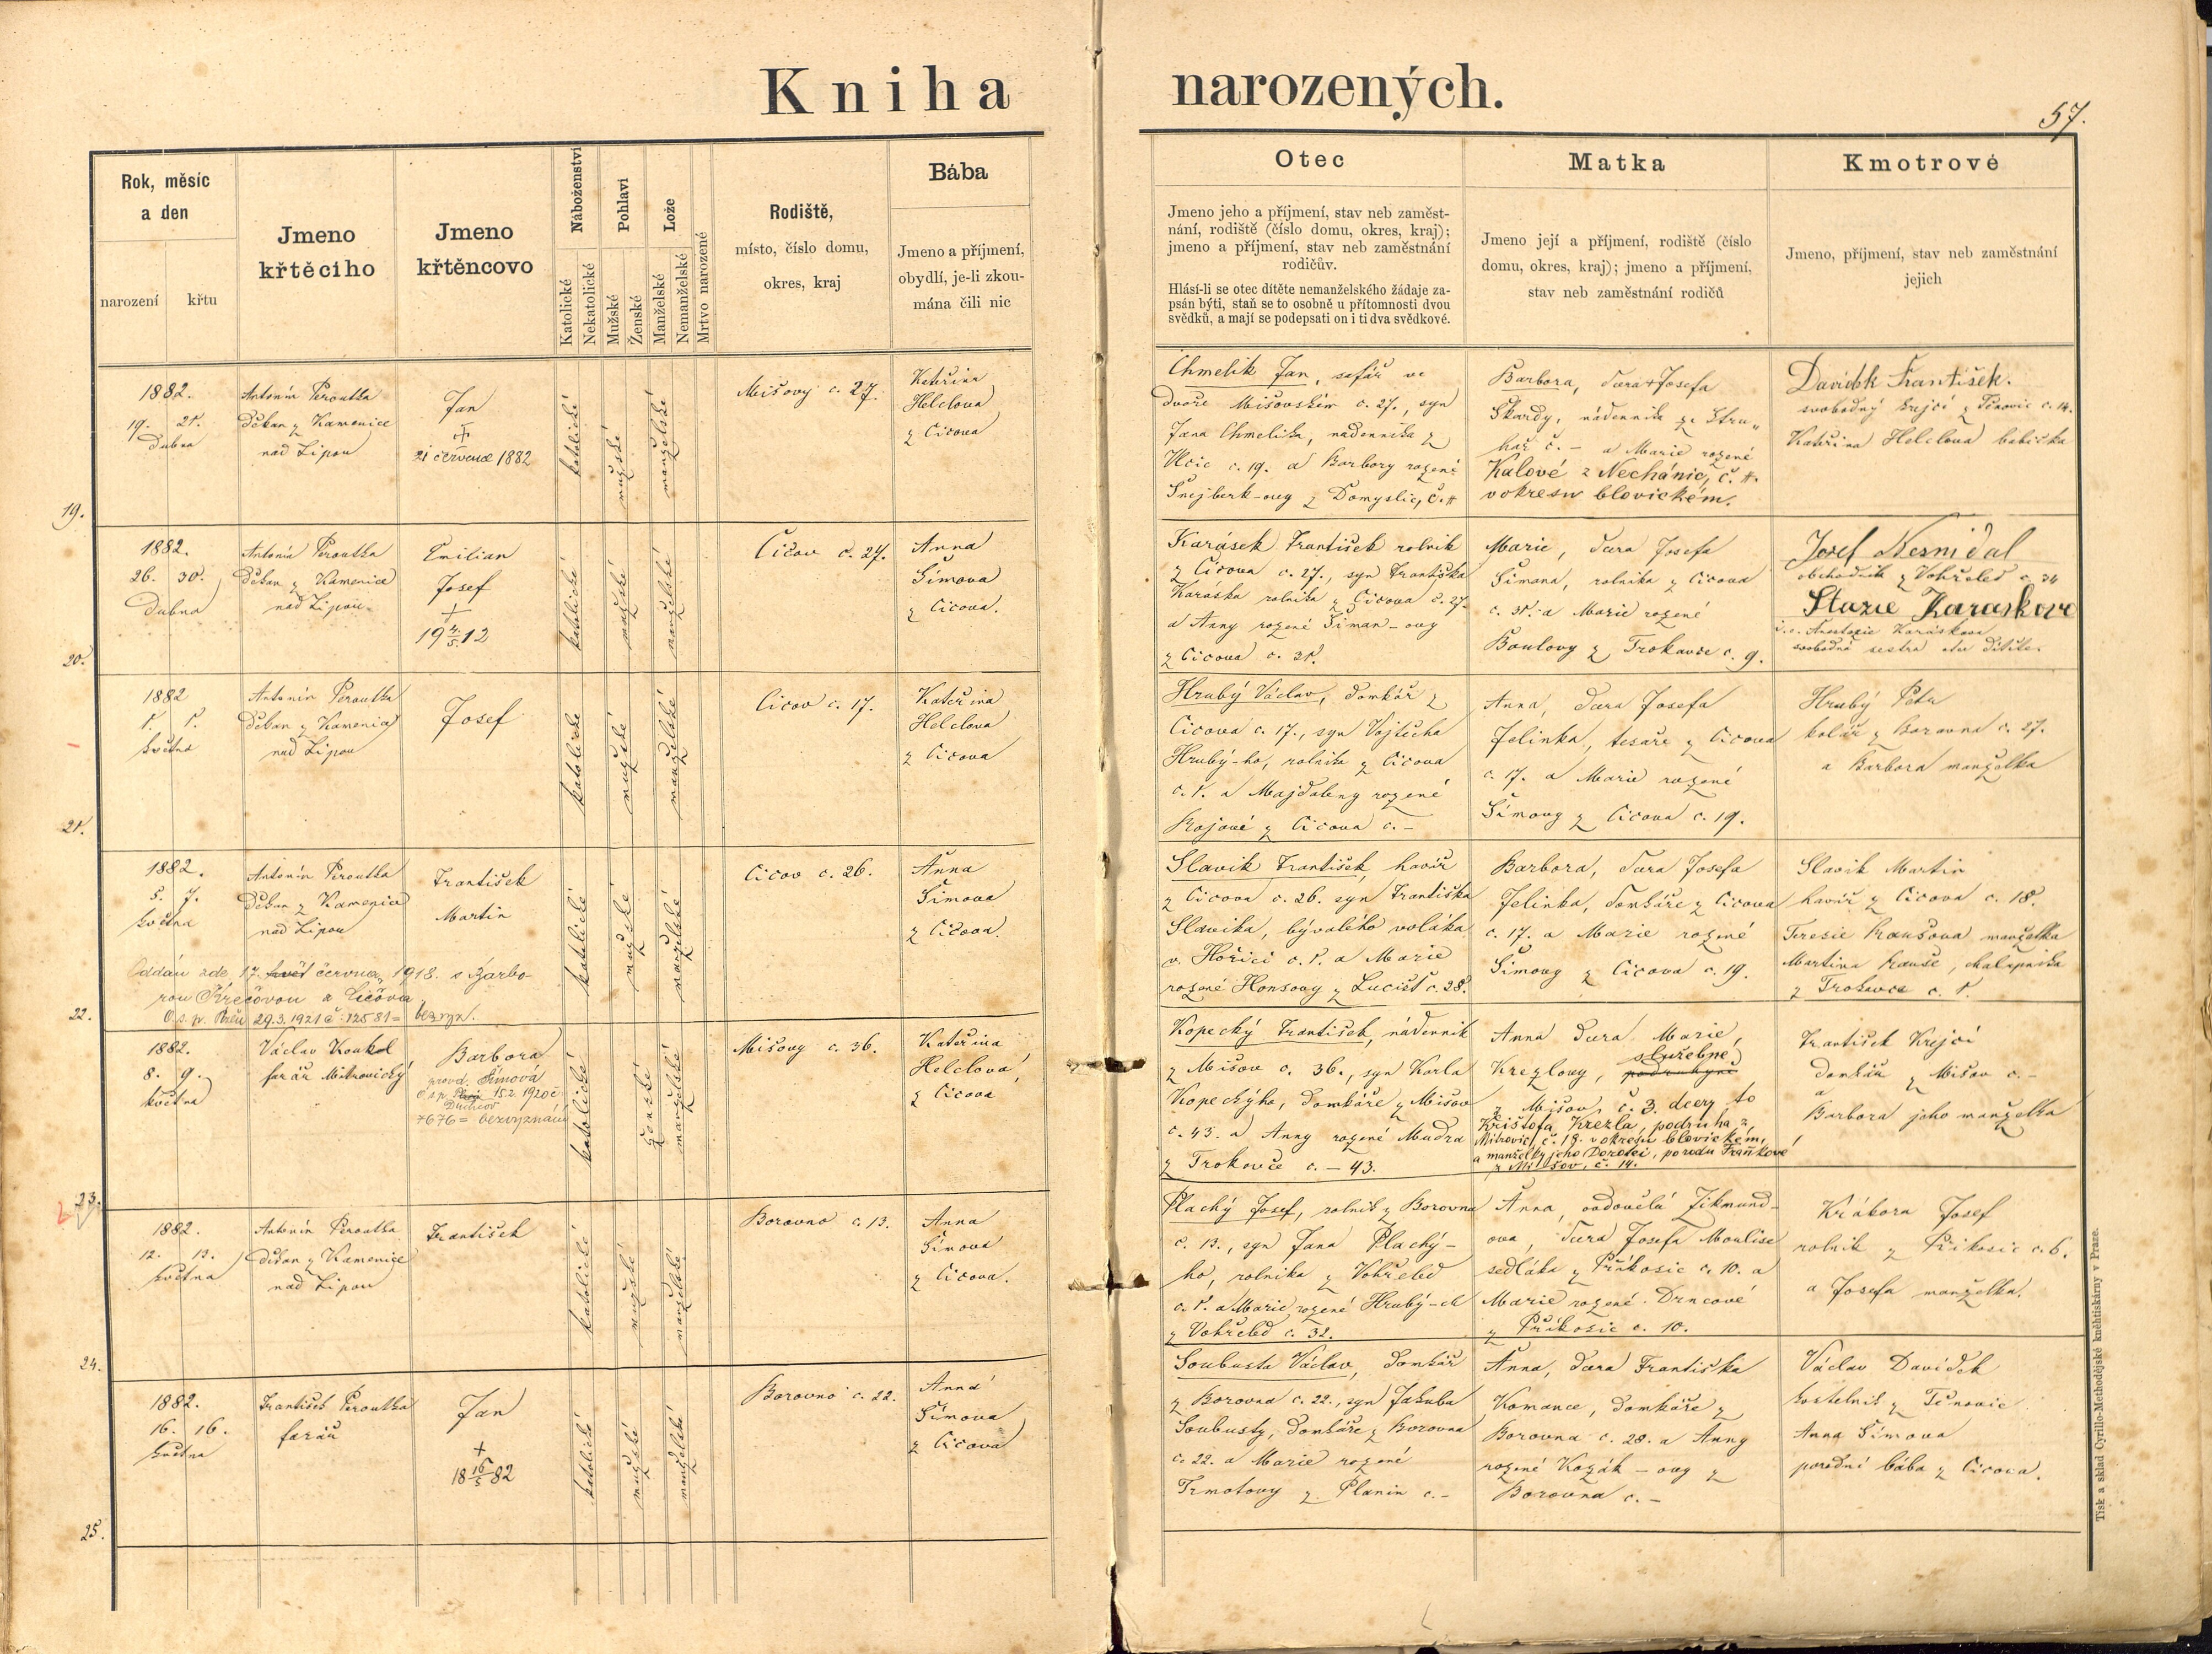 Kniha narozených.
57.
Rok, měsíc
a den
narození
křtu
Jmeno
křtěcího
Jmeno
křtěncovo
Náboženství
Katolické
Nekatolické
Pohlaví
Mužské
Ženské
Lože
Manželské
Nemanželské
Mrtvo narozené
Rodiště,
místo, číslo domu,
okres, kraj
Bába
Jmeno a příjmení,
obydlí, je-li zkou-
mána čili nic
Otec
Jmeno jeho a příjmení, stav neb zaměst-
nání, rodiště (číslo domu, okres, kraj);
jmeno a příjmení, stav neb zaměstnání
rodičův.
Hlásí-li se otec dítěte nemanželského žádaje za-
psán býti, staň se to osobně u přítomnosti dvou
svědků, a mají se podepsati on i ti dva svědkové.
Matka
Jmeno její a příjmení, rodiště (číslo
domu, okres, kraj); jmeno a příjmení,
stav neb zaměstnání rodičů
Kmotrové
Jmeno, příjmení, stav neb zaměstnání
jejich
19.
1882.
19. 21.
dubna
Antonín Peroutka
děkan z Kamenice
nad Lipou
Jan
21 července 1882
katolické
mužské
manželské
Mišovy c. 27.
Kateřina
Helclova
z Cicova
Chmelik Jan, safář ve
dvoře Mišovském c. 27., syn
Jana Chmelika, nádennika z
Vlcic c. 19. a Barbory rozené
Šnejberk-ovy z Domyslic, č. #
Barbora, dcera + Josefa
Škardy, nádennika ze Stru„
har č. – a Marie rozené
Kalové z Nechánic, č. #.
v okresu blovickém.
Davidek František.
svobodný krejci z Těnovic c. 14.
Kateřina Helclova babicka
20.
1882.
26. 30.
Dubna
Antonín Peroutka
děkan z Kamenice
nad Lipou
Emilian
Josef
19 4/5 12
katolické
mužské
manželské
Čičov c. 27.
Anna
Šimova
z Cicova.
Karásek František rolnik
z Cicova c. 27., syn Františka
Karáska rolnika z Cicova c. 27.
a Anny rozené Šiman-ovy
z Cicova c. 31.
Marie, dcera Josefa
Šimana, rolnika z Cicova
c. 31. a Marie rozené
Boulovy z Trokavce c. 9.
Josef Nesnidal
obchodnik z Vohřeled c. 34
Stazie Karaskova
i. e. Anastazie Karáskova
svobodná sestra otce dítěte.
21.
1882
1. 1.
května
Antonín Peroutka
děkan z Kamenice
nad Lipou
Josef
katolické
mužské
manželské
Cicov c. 17.
Kateřina
Helclova
z Cicova
Hrubý Václav, domkář z
Cicova c. 17., syn Vojtěcha
Hrubý-ho, rolnika z Cicova
c. 1. a Majdaleny rozené
Rojové z Cicova c. –
Anna, dcera Josefa
Jelinka, tesaře z Cicova
c. 17. a Marie rozené
Šimovy z Cicova c. 19.
Hrubý Petr
kolář z Borovna c. 27.
a Barbora manželka
22.
1882.
5. 7.
května
Antonín Peroutka
děkan z Kamenice
nad Lipou
František
Martin
Oddán zde 17. června 1918. s Barbo-
rou Křečovou z Čičova
29.3.1921 č. 12581 = bezvyzn.
katolické
mužské
manželské
Cicov c. 26.
Anna
Šimova
z Cicova.
Slavik František, havíř
z Cicova c. 26. syn Františka
Slavika, bývalého voláka
v Hořici c. 1. a Marie
rozené Honsovy z Lucišť c. 28.
Barbora, dcera Josefa
Jelinka, domkáře z Cicova
c. 17. a Marie rozené
Šimovy z Cicova c. 19.
Slavik Martin
havíř z Cicova c. 18.
Terezie Kraušova manželka
Martina Krauše, chalupnika
z Trokavce c. 1.
23.
1882.
8. 9.
května
Václav Koukol
farář Mitrovický
Barbora
provd. Šímová
15.2.1920 č
Duchcov
7676 = bezvyznání
katolické
ženské
manželské
Mišovy c. 36.
Kateřina
Helclova,
z Cicova
Kopecký František, nádennik
z Mišova c. 36., syn Karla
Kopeckýho, domkáře z Mišov
c. 43. a Anny rozené Mudra
z Trokavce c. – 43.
Anna dcera Marie,
Krezlovy, podruhyně služebne
z Mišov, č. 3. dcery to
Krištofa Krezla, podruha z
Mitrovic, č. 19. v okresu blovickém,
a manželky jeho Dorotei, po rodu Fraňkové
z Mišov, č. 14.
František Krejčí
domkář z Mišov c. –
a
Barbora jeho manželka
24.
1882.
12. 13.
května
Antonín Peroutka
děkan z Kamenice
nad Lipou
František
katolické
mužské
manželské
Borovno c. 13.
Anna
Šimova
z Cicova.
Plachý Josef, rolnik z Borovna
c. 13., syn Jana Plachý-
ho, rolnika z Vohřeled
c. 1. a Marie rozené Hrubý-ch
z Vohřeled c. 32.
Anna, ovdovělá Zikmund-
ova, dcera Josefa Moulise
sedláka z Příkosic c. 10. a
Marie rozené Drncové
z Příkosic c. 10.
Krákora Josef
rolnik z Přikosic c. 6.
a Josefa manželka.
25.
1882.
16. 16.
května
František Peroutka
farář
Jan
18 16/5 82
katolické
mužské
manželské
Borovno c. 22.
Anna
Šimova
z Cicova
Soubusta Václav, domkář
z Borovna c. 22., syn Jakuba
Soubusty, domkáře z Borovna
c. 22. a Marie rozené
Trmotovy z Planin c. –
Anna, dcera Františka
Komance, domkáře z
Borovna c. 28. a Anny
rozené Kozák-ovy z
Borovna c. –
Václav Davídek
kostelnik z Těnovic
Anna Šimova
porodní bába z Cicova.
Tisk a sklad Cyrillo-Methodějské knéhtiskárny v Praze.